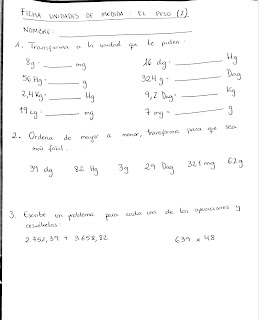 FICHA UNIDADES DE MEDIDA: EL PESO (2)
NOMBRE:
1. Transforma a la unidad que te piden:
8g = mg 16 dg = Hg
56 Hg = g 324 g = Dag
2,4 Kg = Hg 9,2 Dag = Kg
19 cg = mg 7 mg = g
2. Ordena de mayor a menor, transforma para que sea
más fácil.
39 dg 82 Hg 3g 29 Dag 321 mg 62g
3. Escribe un problema para cada una de las operaciones y
resuélvelas:
2.752,39 + 3.658,82 639 x 48